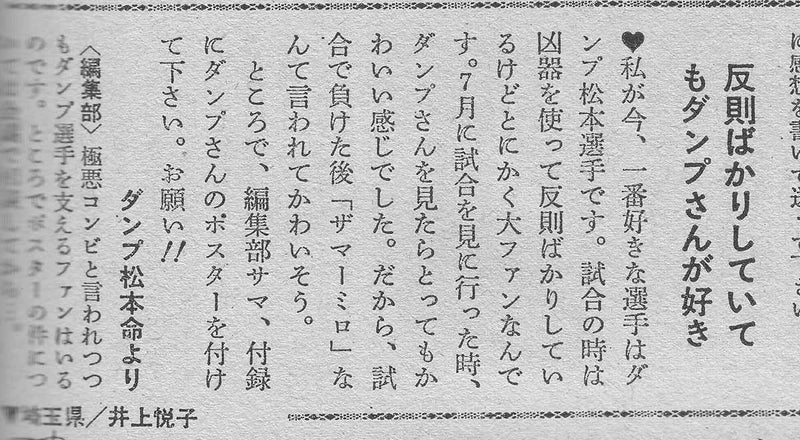 に感想を書いて送って下さい
反則ばかりしていて
もダンプさんが好き
♥私が今、一番好きな選手はダ
ンプ松本選手です。試合の時は
凶器を使って反則ばかりしてい
るけどとにかく大ファンなんで
す。7月に試合を見に行った時、
ダンプさんを見たらとってもか
わいい感じでした。だから、試
合で負けた後「ザマーミロ」な
んて言われてかわいそう。
ところで、編集部サマ、付録
にダンプさんのポスターを付け
て下さい。お願い!!
ダンプ松本命より
〈編集部〉極悪コンビと言われつつ
もダンプ選手を支えるファンはいる
のです。ところでポスターの件につ
埼玉県/井上悦子